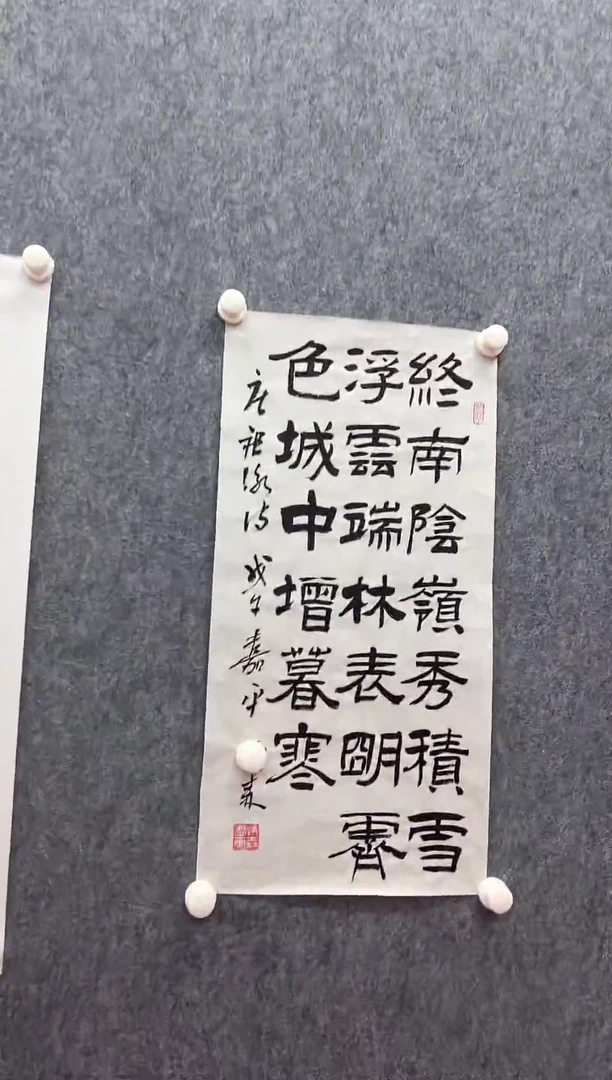 終南陰嶺秀積雪
浮雲端林表朙霽
色城中增暮寒
唐祖詠詩 嘉平